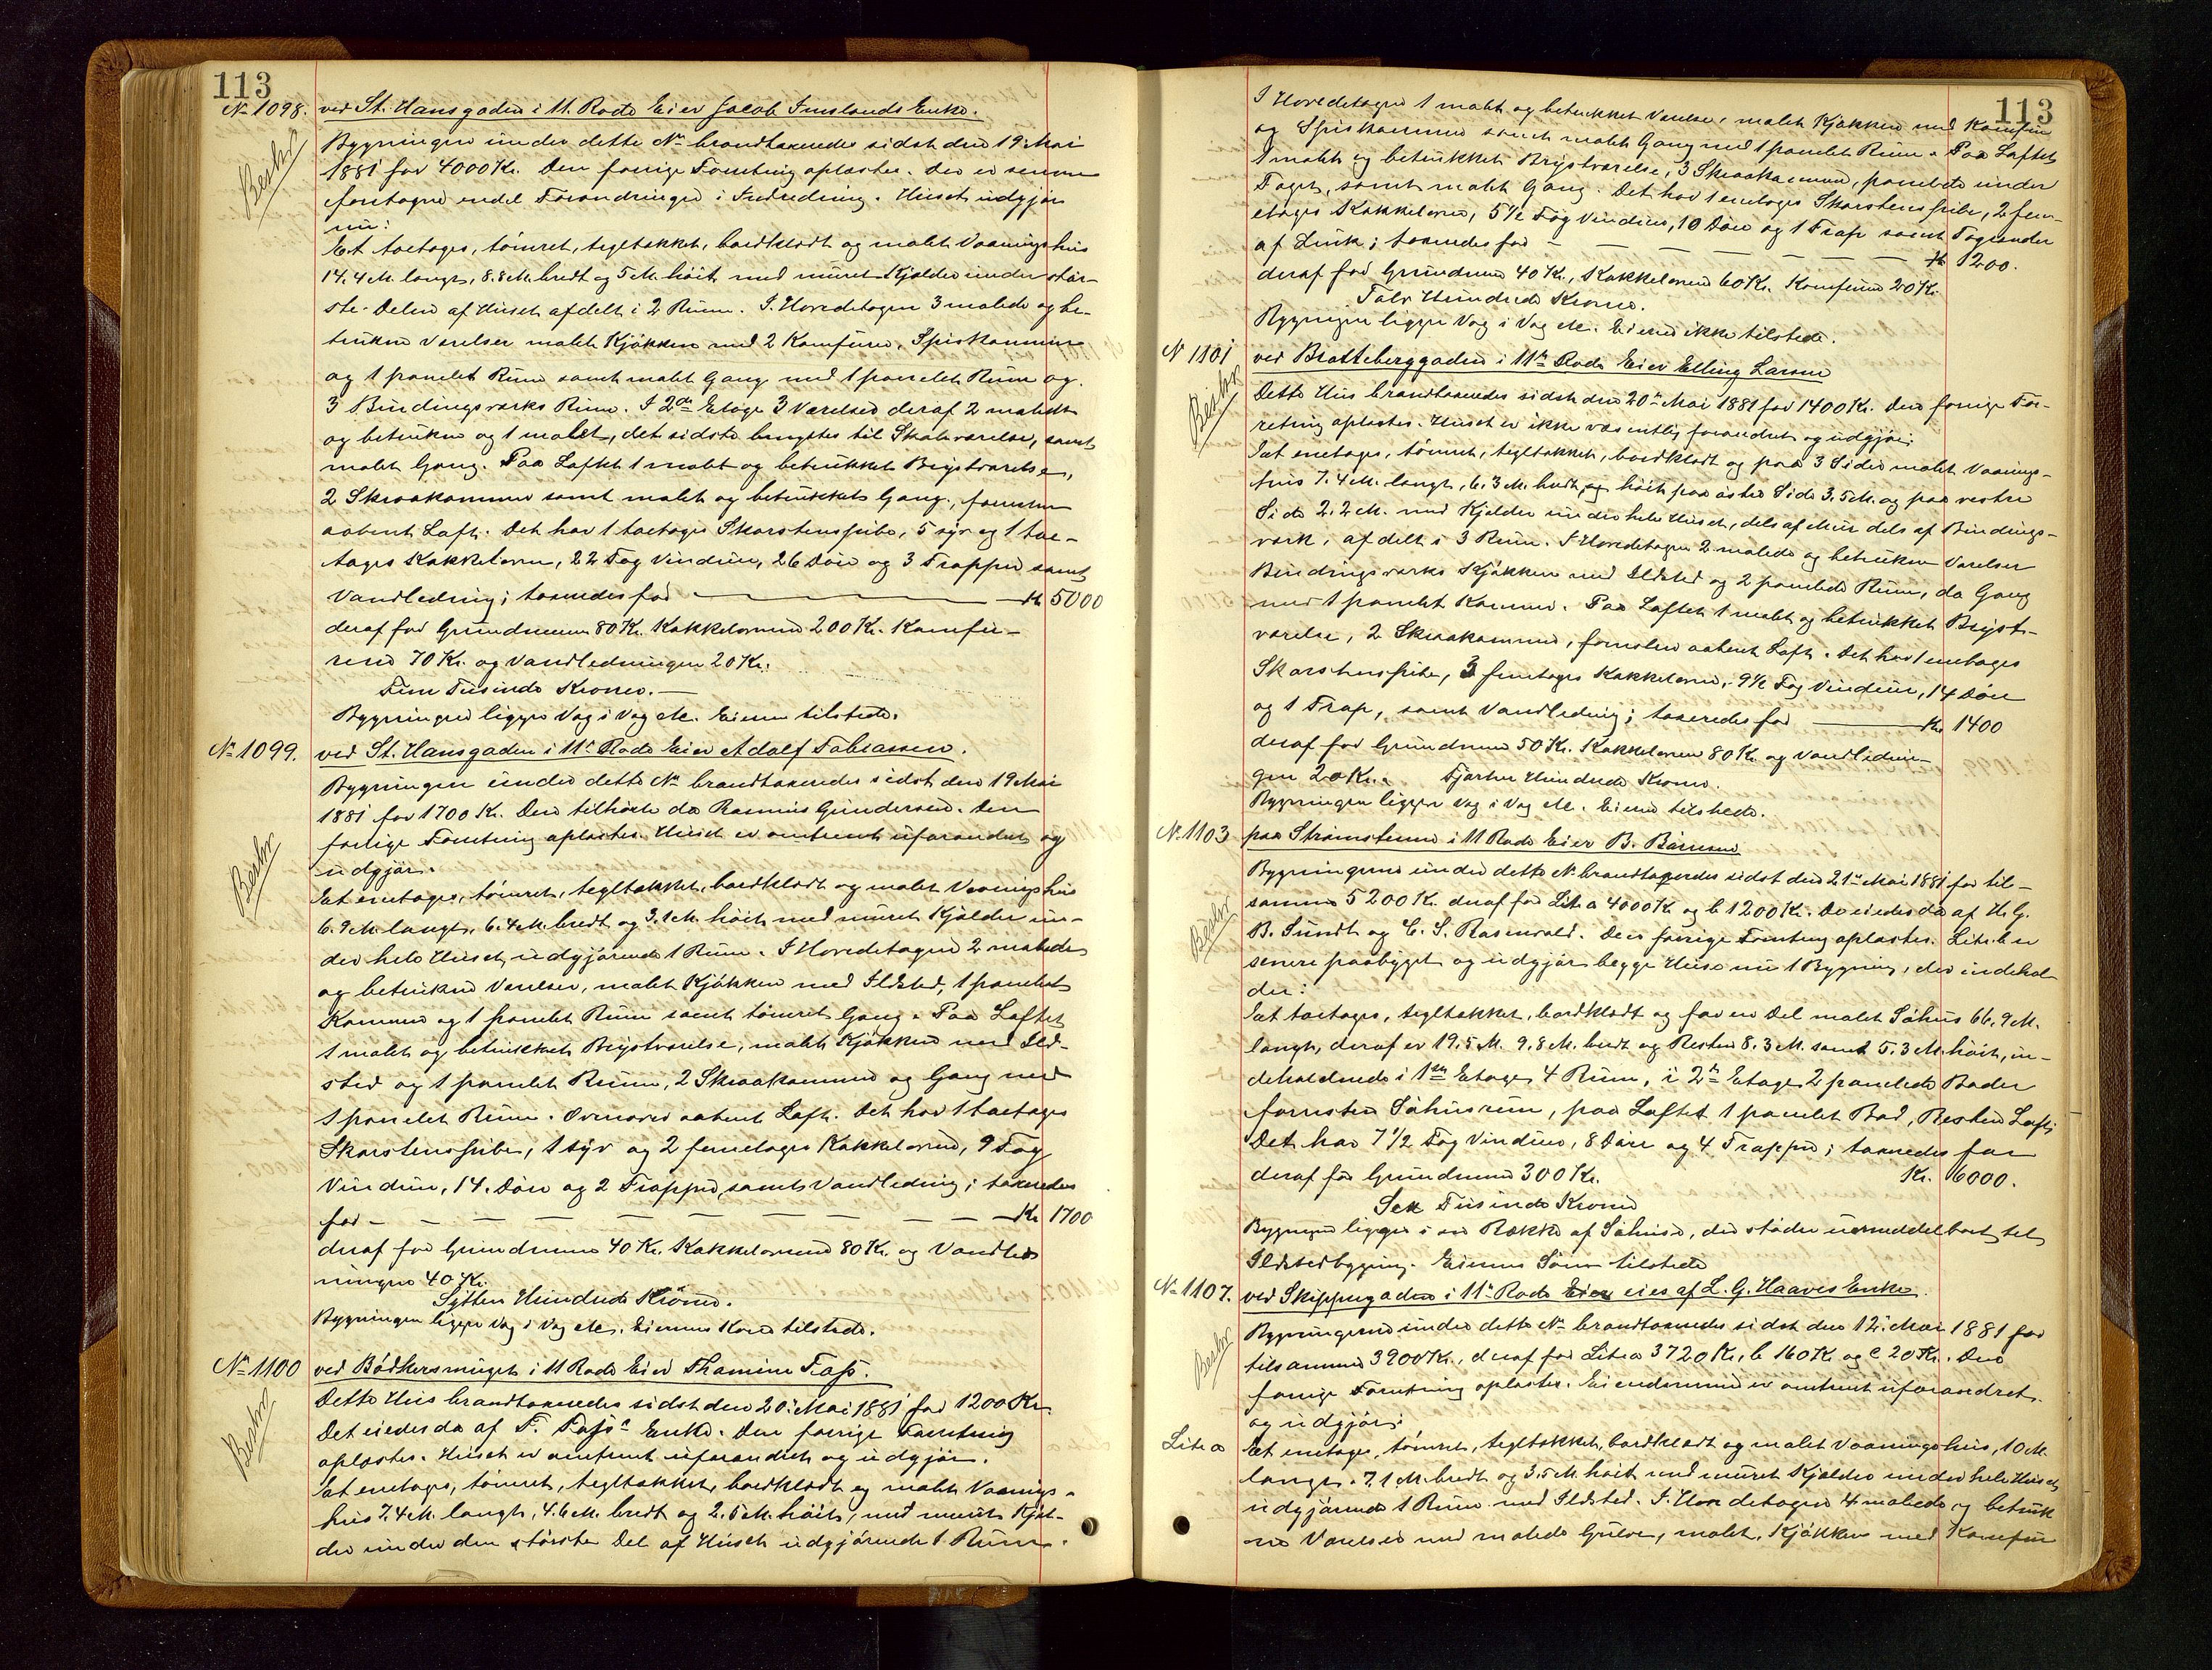 113
No 1098. ved St. Hansgaden i 11. Rode Eier Jacob Imslands Enke.
Beskr
Bygningen under dette No brandtaxeredes sidst den 19. Mai
1881 for 4000 Kr. Den forrige Forretning oplæstes. Der er senere
foretaget endel Forandringer i Indredning. Huset udgjør
nu:
Et toetages, tømret, tegltækket, bordklædt og malet Vaaningshus
14.4 M. langt, 8.8 M. bredt og 5 M. høit med muret Kjelder under stør-
ste Delen af Huset afdelt i 2 Rum. I Hovedetagen 3 malede og be-
trukne Værelser malet Kjøkken med 2 Komfurer, Spiskammer
og 1 panelet Rum samt malet Gang med 1 panelet Rum og
3 Bindingsværks Rum. I 2den Etage 3 Værelser deraf 2 malede
og betrukne og 1 malet, det sidste benyttes til Skoleværelse, samt
malet Gang. Paa Loftet 1 malet og betrukket Brystværelse,
2 Skraakammere samt malet og betrukket Gang, forresten
aabent Loft. Det har 1 toetages Skorstenspibe, 5 syv og 1 toe-
tages Kakkelovne, 22 Fag Vinduer, 26 Døre og 3 Trapper samt
Vandledning; taxeredes for Kr 5000
deraf for Grundmuren 80 Kr. Kakkelovnene 200 Kr. Komfu-
rene 70 Kr. og Vandledningen 20 Kr.
Fem Tusinde Kroner.
Bygningen ligger Væg i Væg etc. Eieren tilstede.
No 1099. ved St. Hansgaden i 11te Rode Eier Adolf Tobiassen.
Beskr
Bygningen under dette No brandtaxeredes sidst den 19 Mai
1881 for 1700 Kr. Den tilhørte da Rasmus Gundersen. Den
forrige Forretning oplæstes. Huset er omtrent uforandret og
udgjør.
Et enetages, tømret, tegltækket, bordklædt og malet Vaaningshus
6.9 M. langt, 6.4 M. bredt og 3.1 M. høit med muret Kjelder un-
der hele Huset, udgjørende 1 Rum. I Hovedetagen 2 malede
og betrukne Værelser, malet Kjøkken med Ildsted, 1 panelet
Kammer og 1 panelet Rum samt tømret Gang. Paa Loftet
1 malet og betrukket Brystværelse, malet Kjøkken med Ild-
sted og 1 panelet Rum, 2 Skraakammere og Gang med
1 panelet Rum. Ovenover aabent Loft. Det har 1 toetages
Skorstenspibe, 1 syv og 2 femetages Kakkelovne, 9 Fag
Vinduer, 14 Døre og 2 Trapper, samt Vandledning; taxeredes
for Kr 1700
deraf for Grundmuren 40 Kr. Kakkelovnene 80 Kr. og Vandled
ningen 40 Kr.
Sytten Hundrede Kroner.
Bygningen ligger Væg i Væg etc. Eierens Kone tilstede.
No 1100 ved Bødkersmuget i 11 Rode Eier Thomine Fass.
Beskr
Dette Hus brandtaxeredes sidst den 20. Mai 1881 for 1200 Kr.
Det eiedes da af F. Fass's Enke. Den forrige Forretning
oplæstes. Huset er omtrent uforandret og udgjør.
Et enetages, tømret, tegltækket, bordklædt og malet Vaanings-
hus 7.4 M. langt, 4.6 M. bredt og 2.5 M. høit, med muret Kjel-
der under den største Del af Huset udgjørende 1 Rum.
113
I Hovedetagen 1 malet og betrukket Værelse, malet Kjøkken med Komfur
og Spiskammer samt malet Gang med 1 panelet Rum. Paa Loftet
1 malet og betrukket Brystværelse, 3 Skraakammere, panelede under
Taget, samt malet Gang. Det har 1 enetages Skorstenspibe, 2 fem-
etages Kakkelovne, 5 1/2 Fag Vinduer, 10 Døre og 1 Trap samt Tagrender
af Zink; taxeredes for Kr 1200.
deraf for Grundmuren 40 Kr., Kakkelovnene 60 Kr. Komfuren 20 Kr.
Tolv Hundrede Kroner.
Bygningen ligger Væg i Væg etc. Eieren ikke tilstede.
No 1101 ved Bratteberggaden i 11te Rode Eier Elling Larsen
Beskr
Dette Hus brandtaxeredes sidst den 20de Mai 1881 for 1400 Kr. Den forrige For-
retning oplæstes. Huset er ikke væsentlig forandret og udgjør:
Et enetages, tømret, tegltækket, bordklædt og paa 3 Sider malet Vaanings-
hus 7.4 M. langt, 6.3 M. bredt, og høit paa østre Side 3.5 M. og paa vestre
Side 2.2 M. med Kjelder under hele Huset, dels af Mur dels af Bindings-
værk, afdelt i 3 Rum. I Hovedetagen 2 malede og betrukne Værelser
Bindingsværks Kjøkken med Ildsted og 2 panelede Rum, do Gang
med 1 panelet Kammer. Paa Loftet 1 malet og betrukket Bryst-
værelse, 2 Skraakammere, forresten aabent Loft. Det har 1 enetages
Skorstenspibe, 3 femetages Kakkelovne, 9 1/2 Fag Vinduer, 14 Døre
og 1 Trap, samt Vandledning; taxeredes for Kr. 1400
deraf for Grundmuren 50 Kr. Kakkelovnene 80 Kr. og Vandlednin-
gen 20 Kr. Fjorten Hundrede Kroner.
Bygningen ligger Væg i Væg etc. Eieren tilstede.
No 1103 paa Strømstenen i 11 Rode Eier B. Bärnsen
Beskr
Bygningerne under dette No brandtaxeredes sidst den 21de Mai 1881 for til-
sammen 5200 Kr. deraf for Litr. a 4000 Kr og b 1200 Kr. De eiedes da af H. G.
B. Sundt og C. S. Rosenvald. Den forrige Forretning oplæstes. Litr. b er
senere paabygget og udgjør begge Huse nu 1 Bygning, der indehol
der:
Et toetages, tegltækket, bordklædt og for en Del malet Søhus 66.9 M.
langt, deraf er 19.5 M. 9.8 M. bredt og Resten 8.3 M. samt 5.3 M. høit, in-
deholdende i 1ste Etage 4 Rum, i 2den Etage 2 panelede Boder
forresten Søhusrum, paa Loftet 1 panelet Bod, Resten Loft;
Det har 7 1/2 Fag Vinduer, 8 Døre og 4 Trapper; taxeredes for
deraf for Grundmuren 300 Kr. Kr. 6000.
Sex Tusinde Kroner
Bygningen ligger i en Række af Søhuse, der støder umiddelbart til
Ildstedbygning. Eierens Søn tilstede
No 1107. ved Skippergaden i 11te Rode Eier eies af L. G. Haaves Enke.
Beskr
Bygningerne under dette No brandtaxeredes sidst den 12. Mai 1881 for
tilsammen 3900 Kr., deraf for Litr a 3720 Kr, b 160 Kr og c 20 Kr. Den
forrige Forretning oplæstes. Eiendommen er omtrent uforandret
og udgjør:
Litr a Et enetages, tømret, tegltækket, bordklædt og malet Vaaningshus, 10 M.
langt, 7.1 M. bredt og 3.5 M. høit med muret Kjelder under hele Huset,
udgjørende 1 Rum med Ildsted. I Hovedetagen 4 malede og betruk
ne Værelser med malede Gulve, malet Kjøkken med Komfur